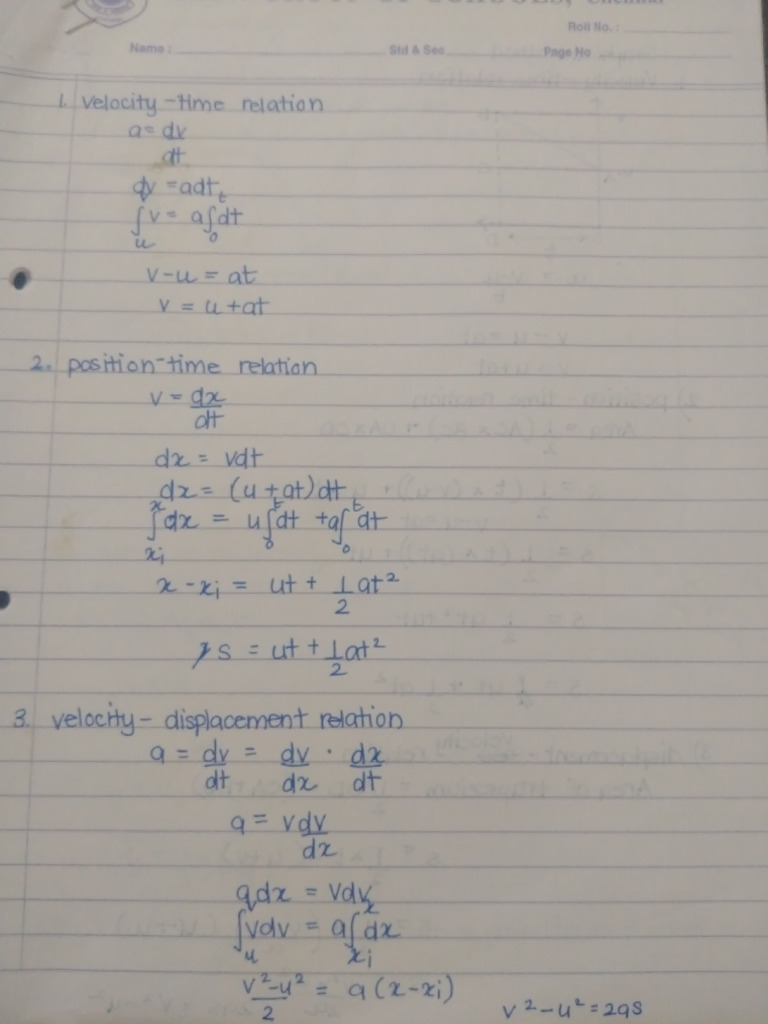 Roll No. :
Name : Std & Sec Page No
1. velocity-time relation
a = dv/dt
dv = adt
∫ᵤ v = a∫₀ᵗ dt
v-u = at
v = u+at
2. position-time relation
v = dx/dt
dx = vdt
dx = (u+at)dt
∫ₓᵢˣ dx = u∫₀ᵗ dt + a∫₀ᵗ dt
x-xᵢ = ut + 1/2 at²
s = ut + 1/2 at²
3. velocity- displacement relation
a = dv/dt = dv/dx · dx/dt
a = vdv/dx
adx = vdv
∫ᵤ vdv = a∫ₓᵢˣ dx
v²-u²/2 = a(x-xᵢ)
v²-u² = 2as